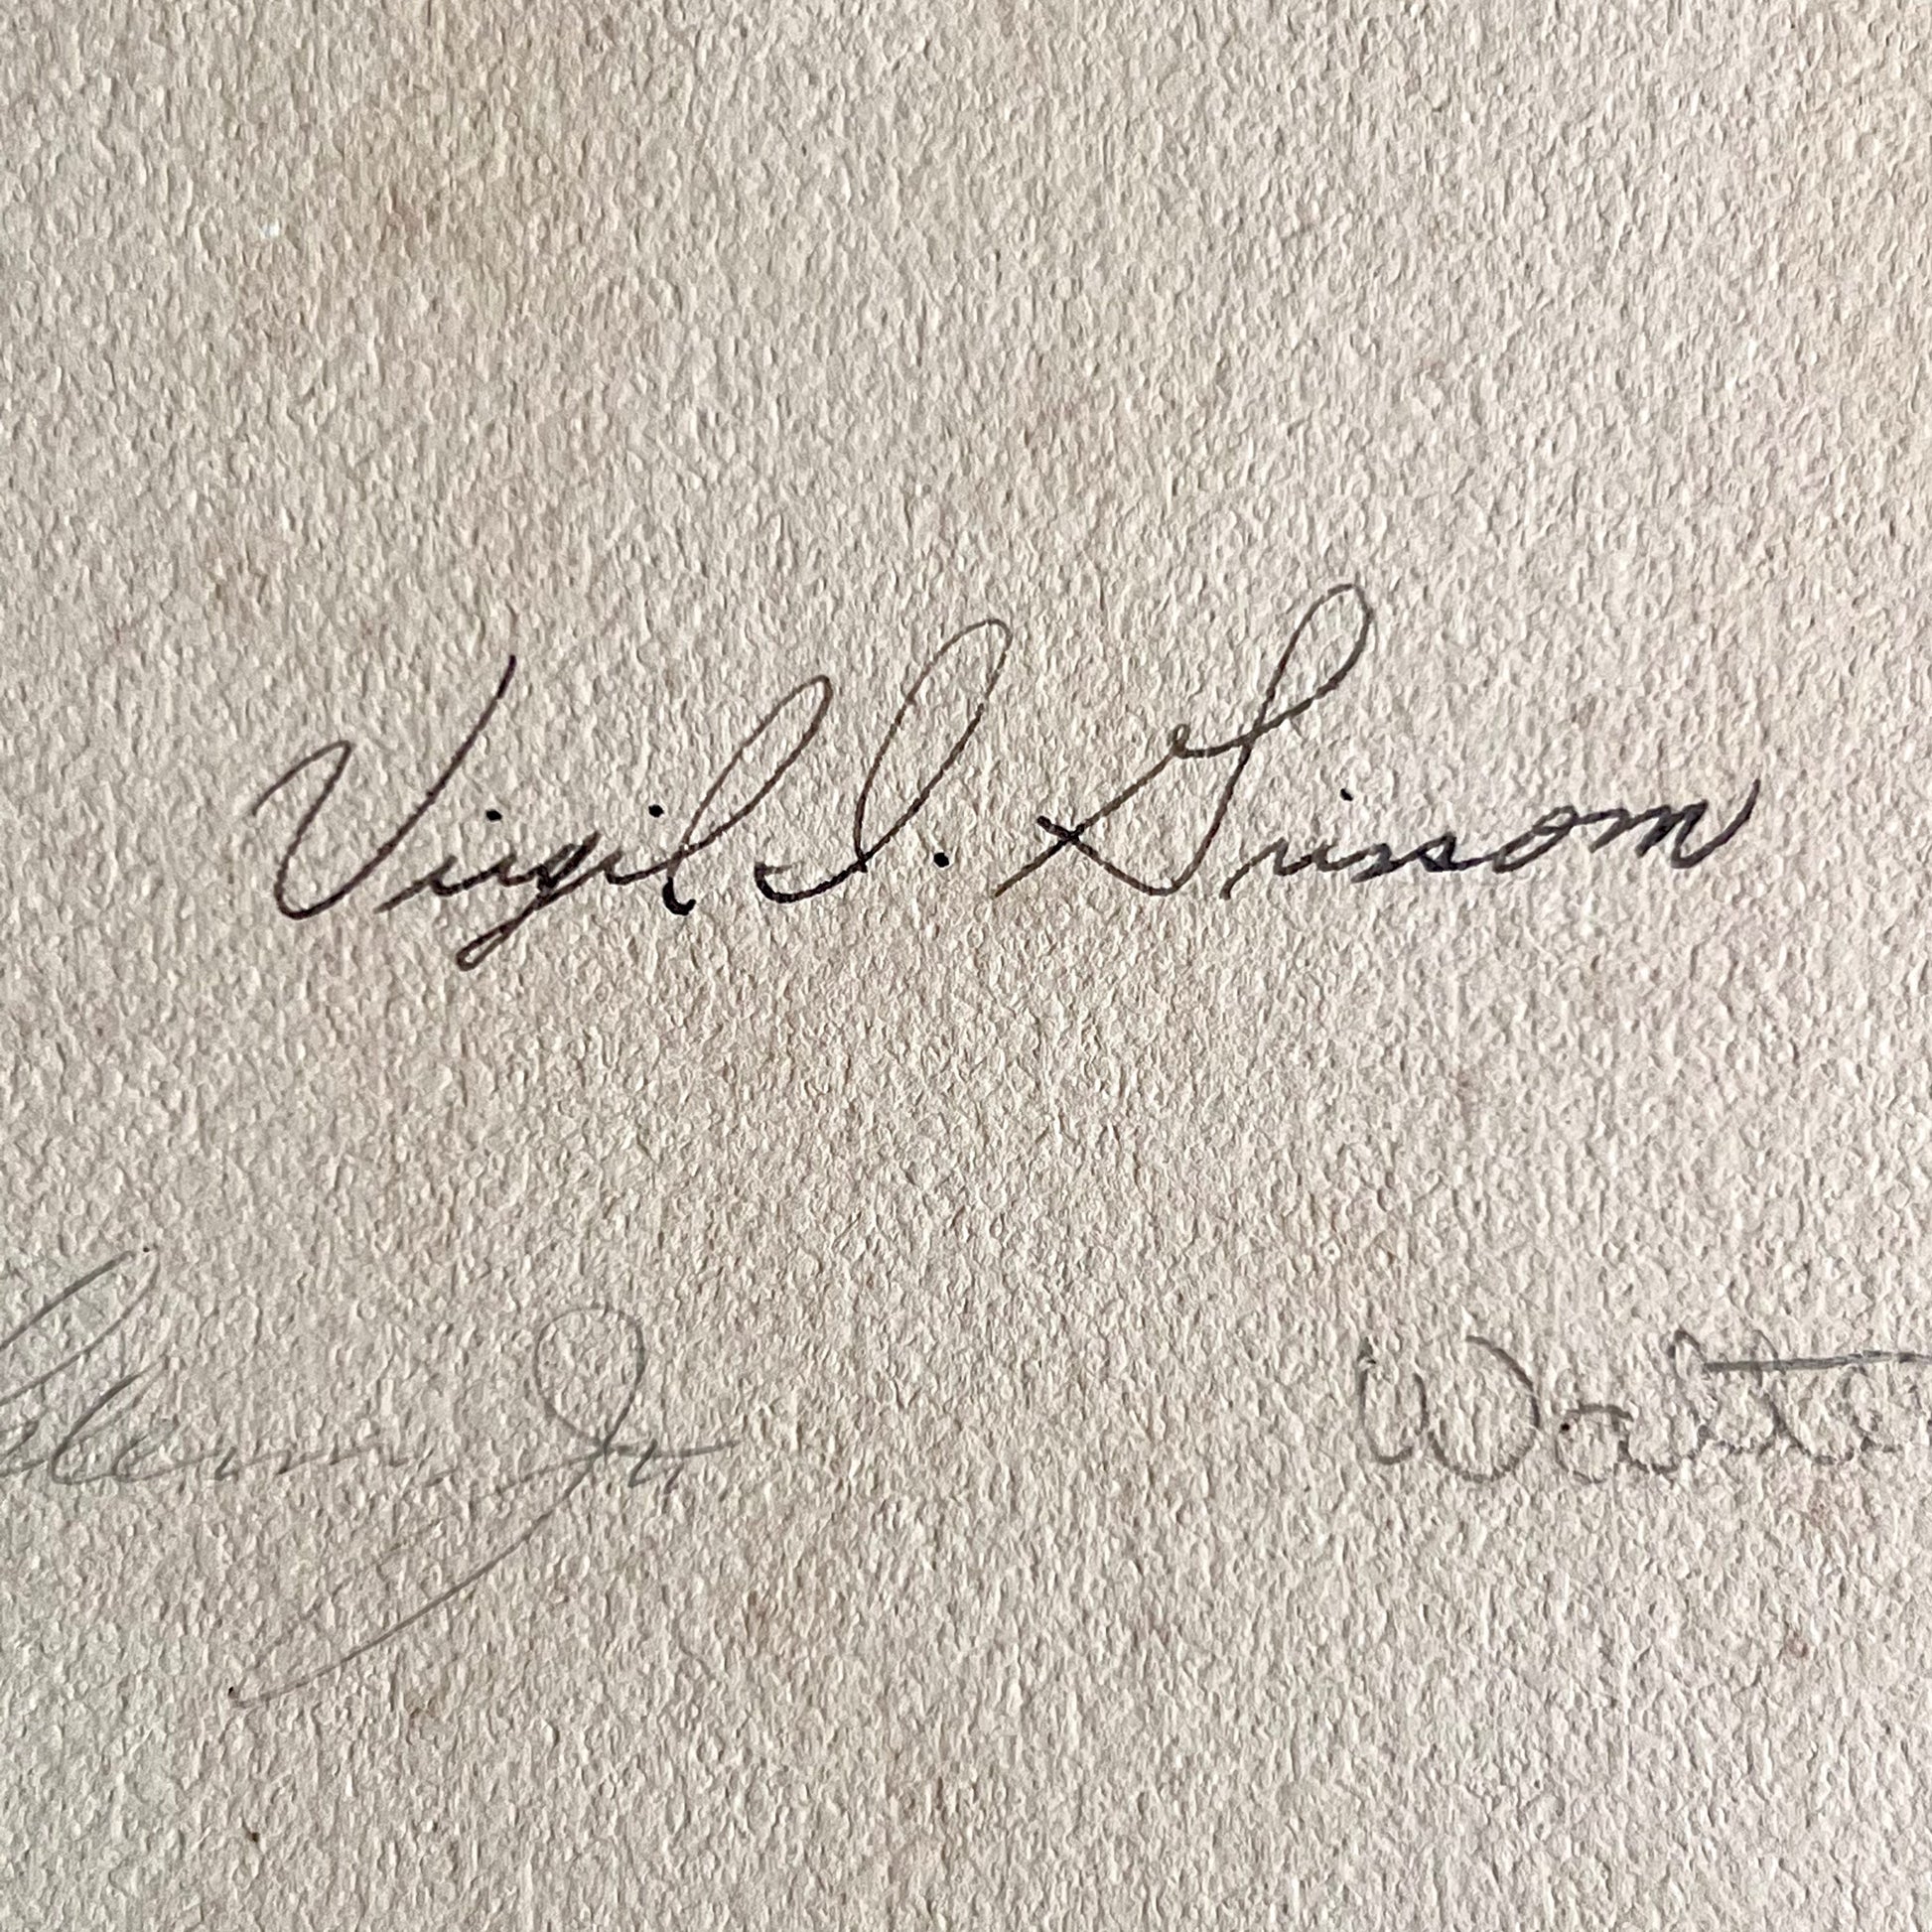 Virgil I. Grissom
Glenn Jr. Walter